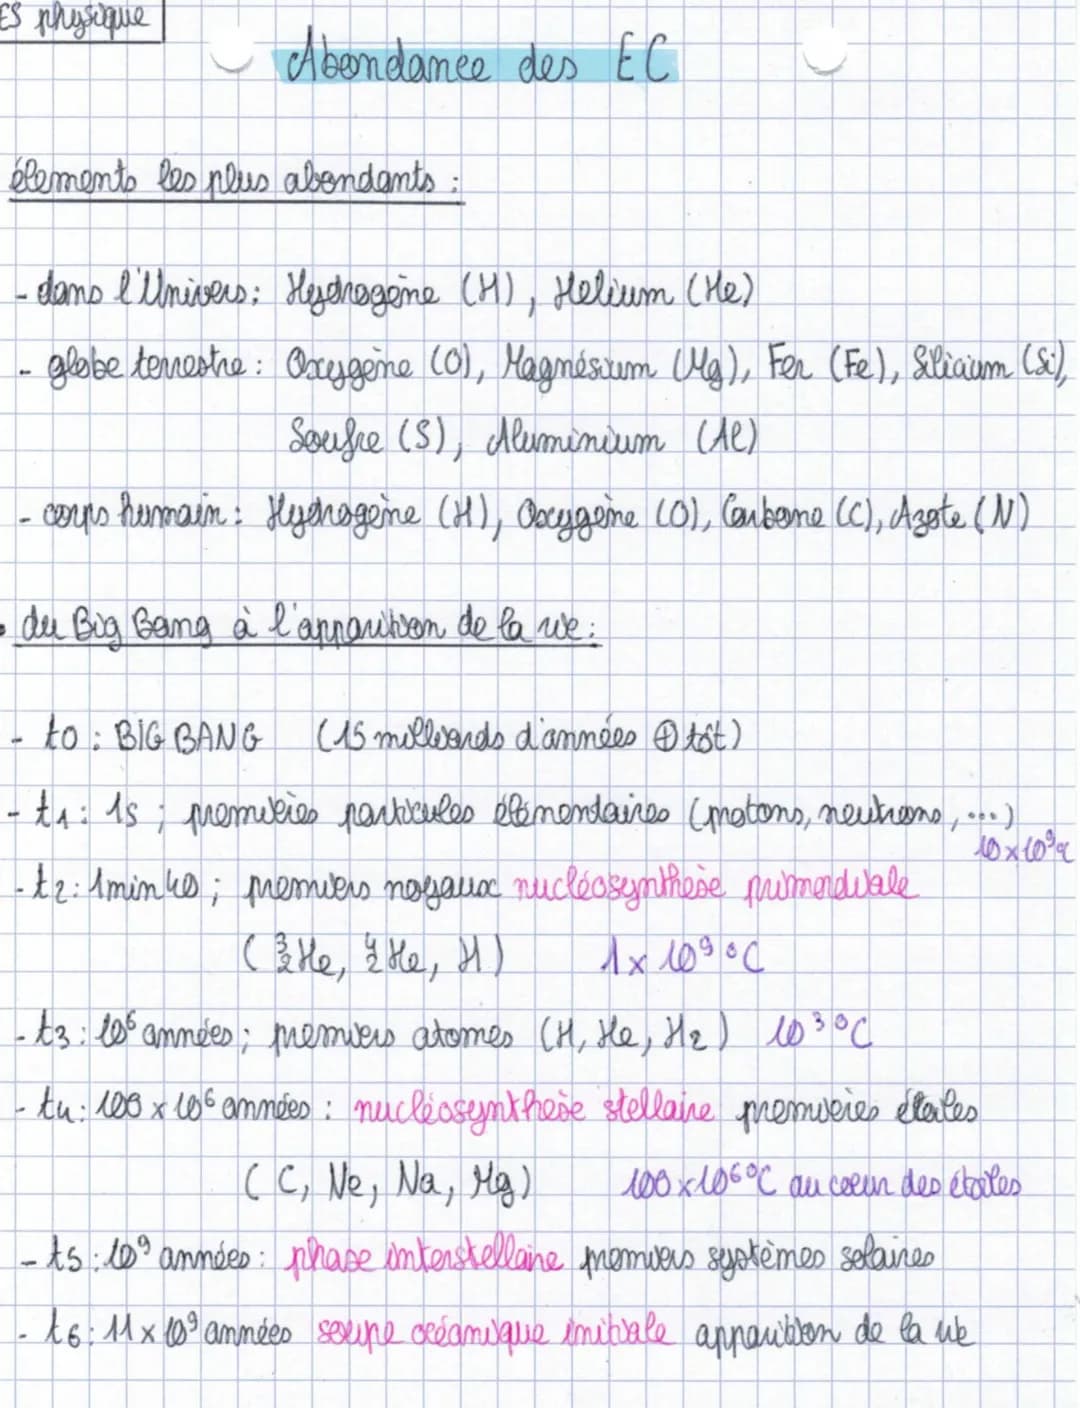 ES physique
Abondance des EC
élements les plus abondants :
- dans l'Univers : Hydrogène (H), Helium (He)
- globe terrestre : Oxygène (O), Magnésium (Mg), Fer (Fe), Silicium (Si),
Soufre (S), Aluminium (Al)
- corps humain : Hydrogène (H), Oxygène (O), Carbone (C), Azote (N)
• du Big Bang à l'apparition de la vie :
- t0 : BIG BANG (15 milliards d'années ⊕ tôt)
- t1 : 1s ; premières particules élémentaires (protons, neutrons, ...)
10 x 10⁹ °C
- t2 : 1min40 ; premiers noyaux nucléosynthèse primordiale
(³₂He, ⁴₂He, H) 1 x 10⁹ °C
- t3 : 10⁶ années ; premiers atomes (H, He, H₂) 10³ °C
- t4 : 100 x 10⁶ années : nucléosynthèse stellaire premières étoiles
(C, Ne, Na, Mg) 100 x 10⁶ °C au coeur des étoiles
- t5 : 10⁹ années : phase interstellaire premiers systèmes solaires
- t6 : 11 x 10⁹ années soupe océanique initiale apparition de la vie